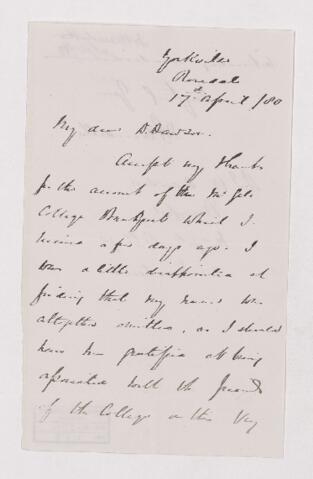 Yorkville
Rosedale
17th April /80
My dear Dr Dawson.
Accept my thanks
for the account of the McGill
College Banquet which I
received a few days ago. I
was a little disappointed at
finding that my name was
altogether omitted, as I should
have been gratified at being
associated with the friends
of the College on this very